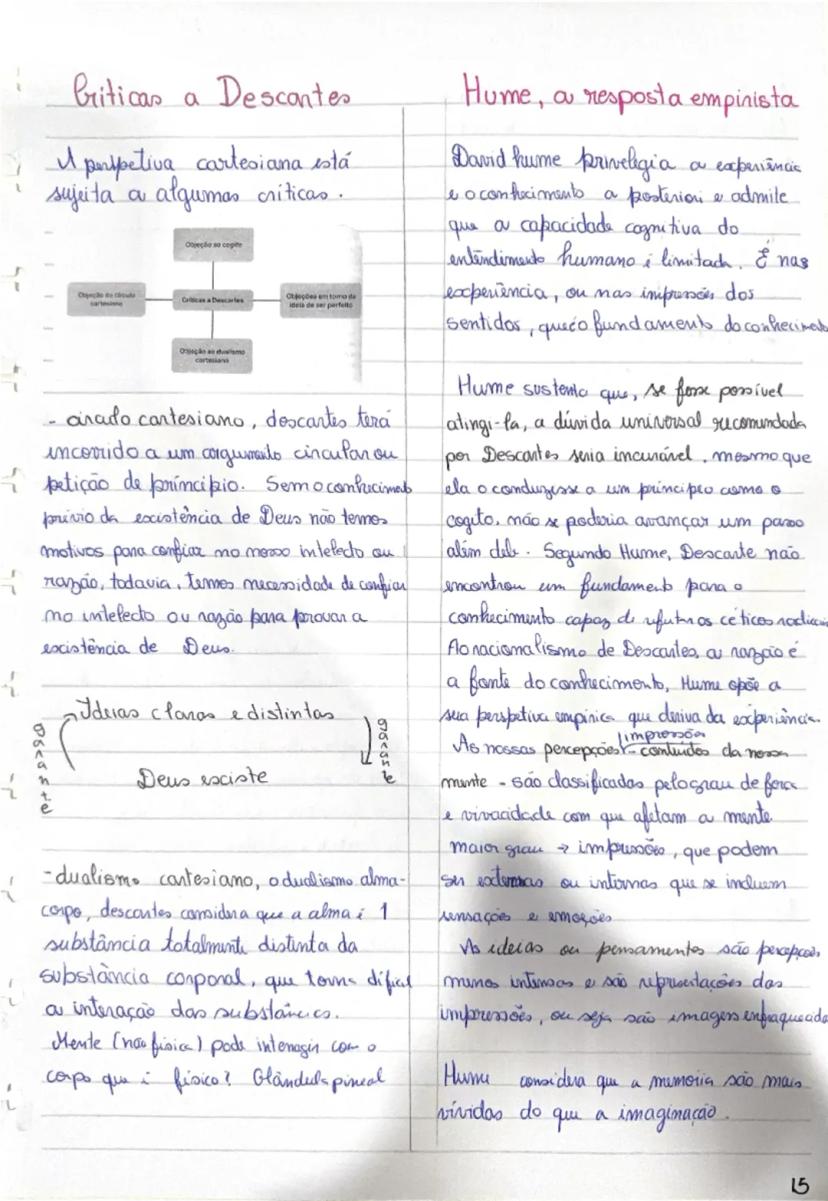 Críticas a Descartes
A perspetiva cartesiana está
sujeita a algumas críticas.
Objeção ao cogito
Objeção do círculo
cartesiano
Críticas a Descartes
Objeções em torno da
ideia de ser perfeito
Objeção ao dualismo
cartesiano
- círculo cartesiano, descartes terá
incorrido a um argumento circular ou
petição de príncipio. Sem o conhecimento
prévio da existência de Deus não temos
motivos para confiar no nosso intelecto ou
razão, todavia, temos necessidade de confiar
no intelecto ou razão para provar a
existência de Deus.
Ideias claras e distintas
garante
garante
Deus existe
- dualismo cartesiano, o dualismo alma-
corpo, descartes considera que a alma é 1
substância totalmente distinta da
substância corporal, que torna difícil
a interação das substâncias.
Mente (não física) pode interagir com o
corpo que é físico? Glândula pineal
Hume, a resposta empirista
David hume priveligia a experiência
e o conhecimento a posteriori e admite
que a capacidade cognitiva do
entendimento humano é limitada. É nas
experiência, ou nas impressões dos
sentidos, que é o fundamento do conhecimento
Hume sustenta que, se fosse possível
atingi-la, a dúvida universal recomendada
por Descartes seria incurável, mesmo que
ela o conduzisse a um princípio como o
cogito, não se poderia avançar um passo
além dele. Segundo Hume, Descarte não
encontrou um fundamento para o
conhecimento capaz de refutar os céticos radicais
Ao racionalismo de Descartes, a razão é
a fonte do conhecimento, Hume opõe a
sua perspetiva empírica que deriva da experiência.
impressão
As nossas percepções - conteúdos da nossa
mente - são classificadas pelo grau de força
e vivacidade com que afetam a mente.
maior grau → impressões, que podem
ser externas ou internas que se incluem
sensações e emoções
As ideias ou pensamentos são percepções
menos intensas e são representações das
impressões, ou seja são imagens enfraquecidas
Hume considera que a memória são mais
vívidas do que a imaginação.
15